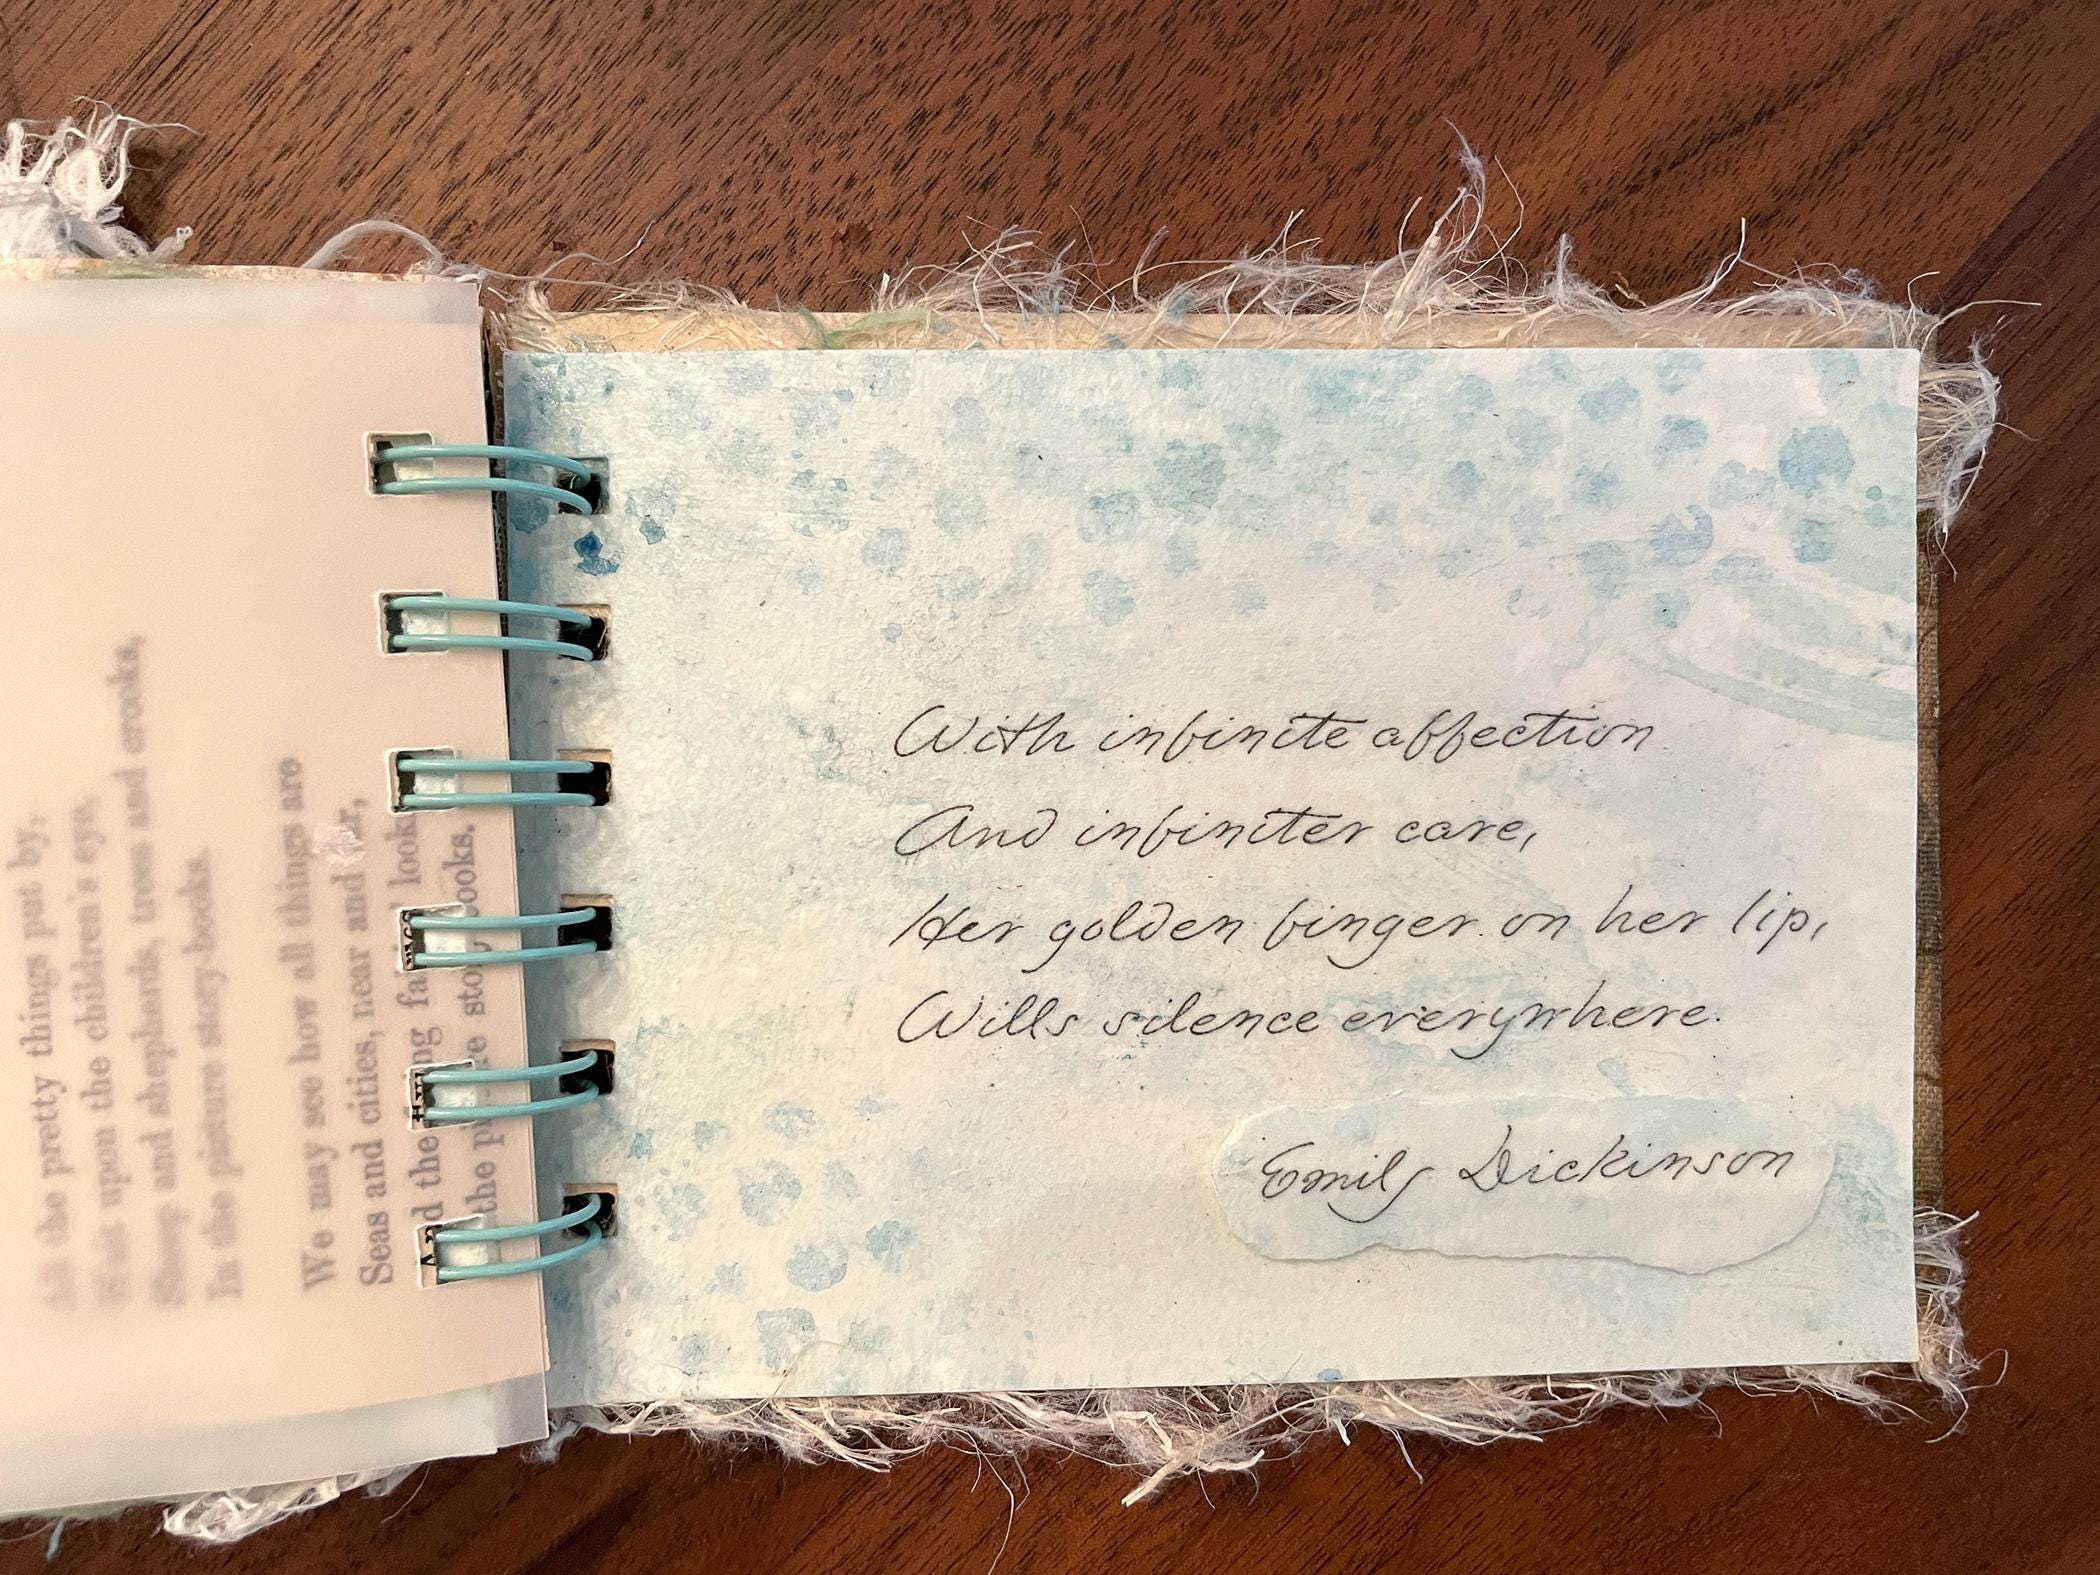 All the pretty things put by,
Wait upon the children's eye,
Sheep and shepherds, trees and crooks,
In the picture story-books.
We may see how all things are
Seas and cities, near and far,
And the flying fairies' looks
the picture story books.
With infinite affection
And infiniter care,
Her golden finger on her lip,
Wills silence everywhere.
Emily Dickinson